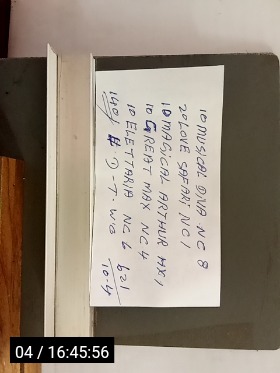 10 MUSICAL DNA NC 8
20 LOVE SAFARI NC 1
10 MAGICIAL ARTHUR HX1
10 GREAT MAX NC 4
10 ELETTARIA NC 6 621
D-T. WG 10-4
04 / 16:45:56